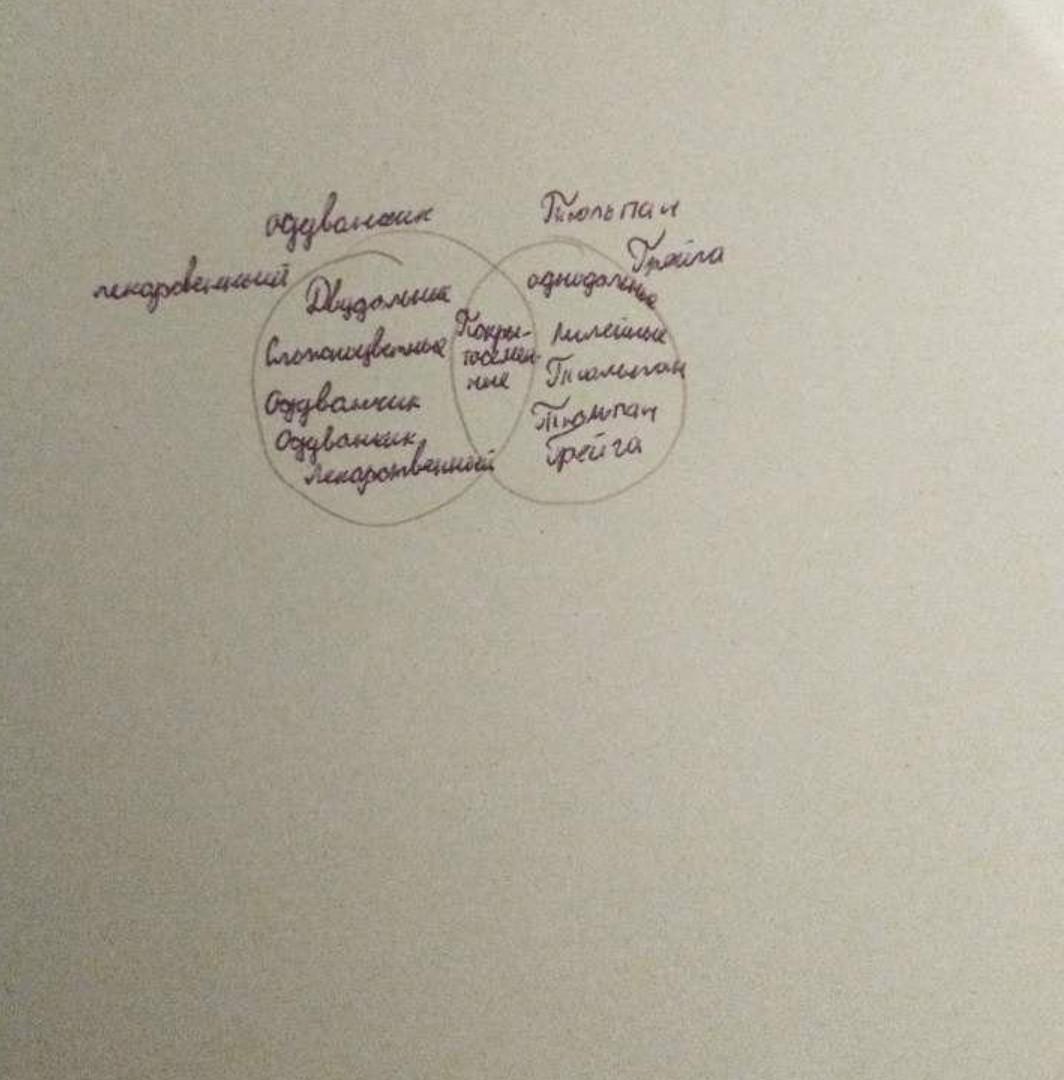 одуванчик
лекаровенный
Двудольные
Сложноцветные
Одуванчик
Одуванчик
лекарственный
Покры-
тосемен-
ные
Тюльпан
Грейга
однодольные
Лилейные
Тюльпан
Тюльпан
Грейга